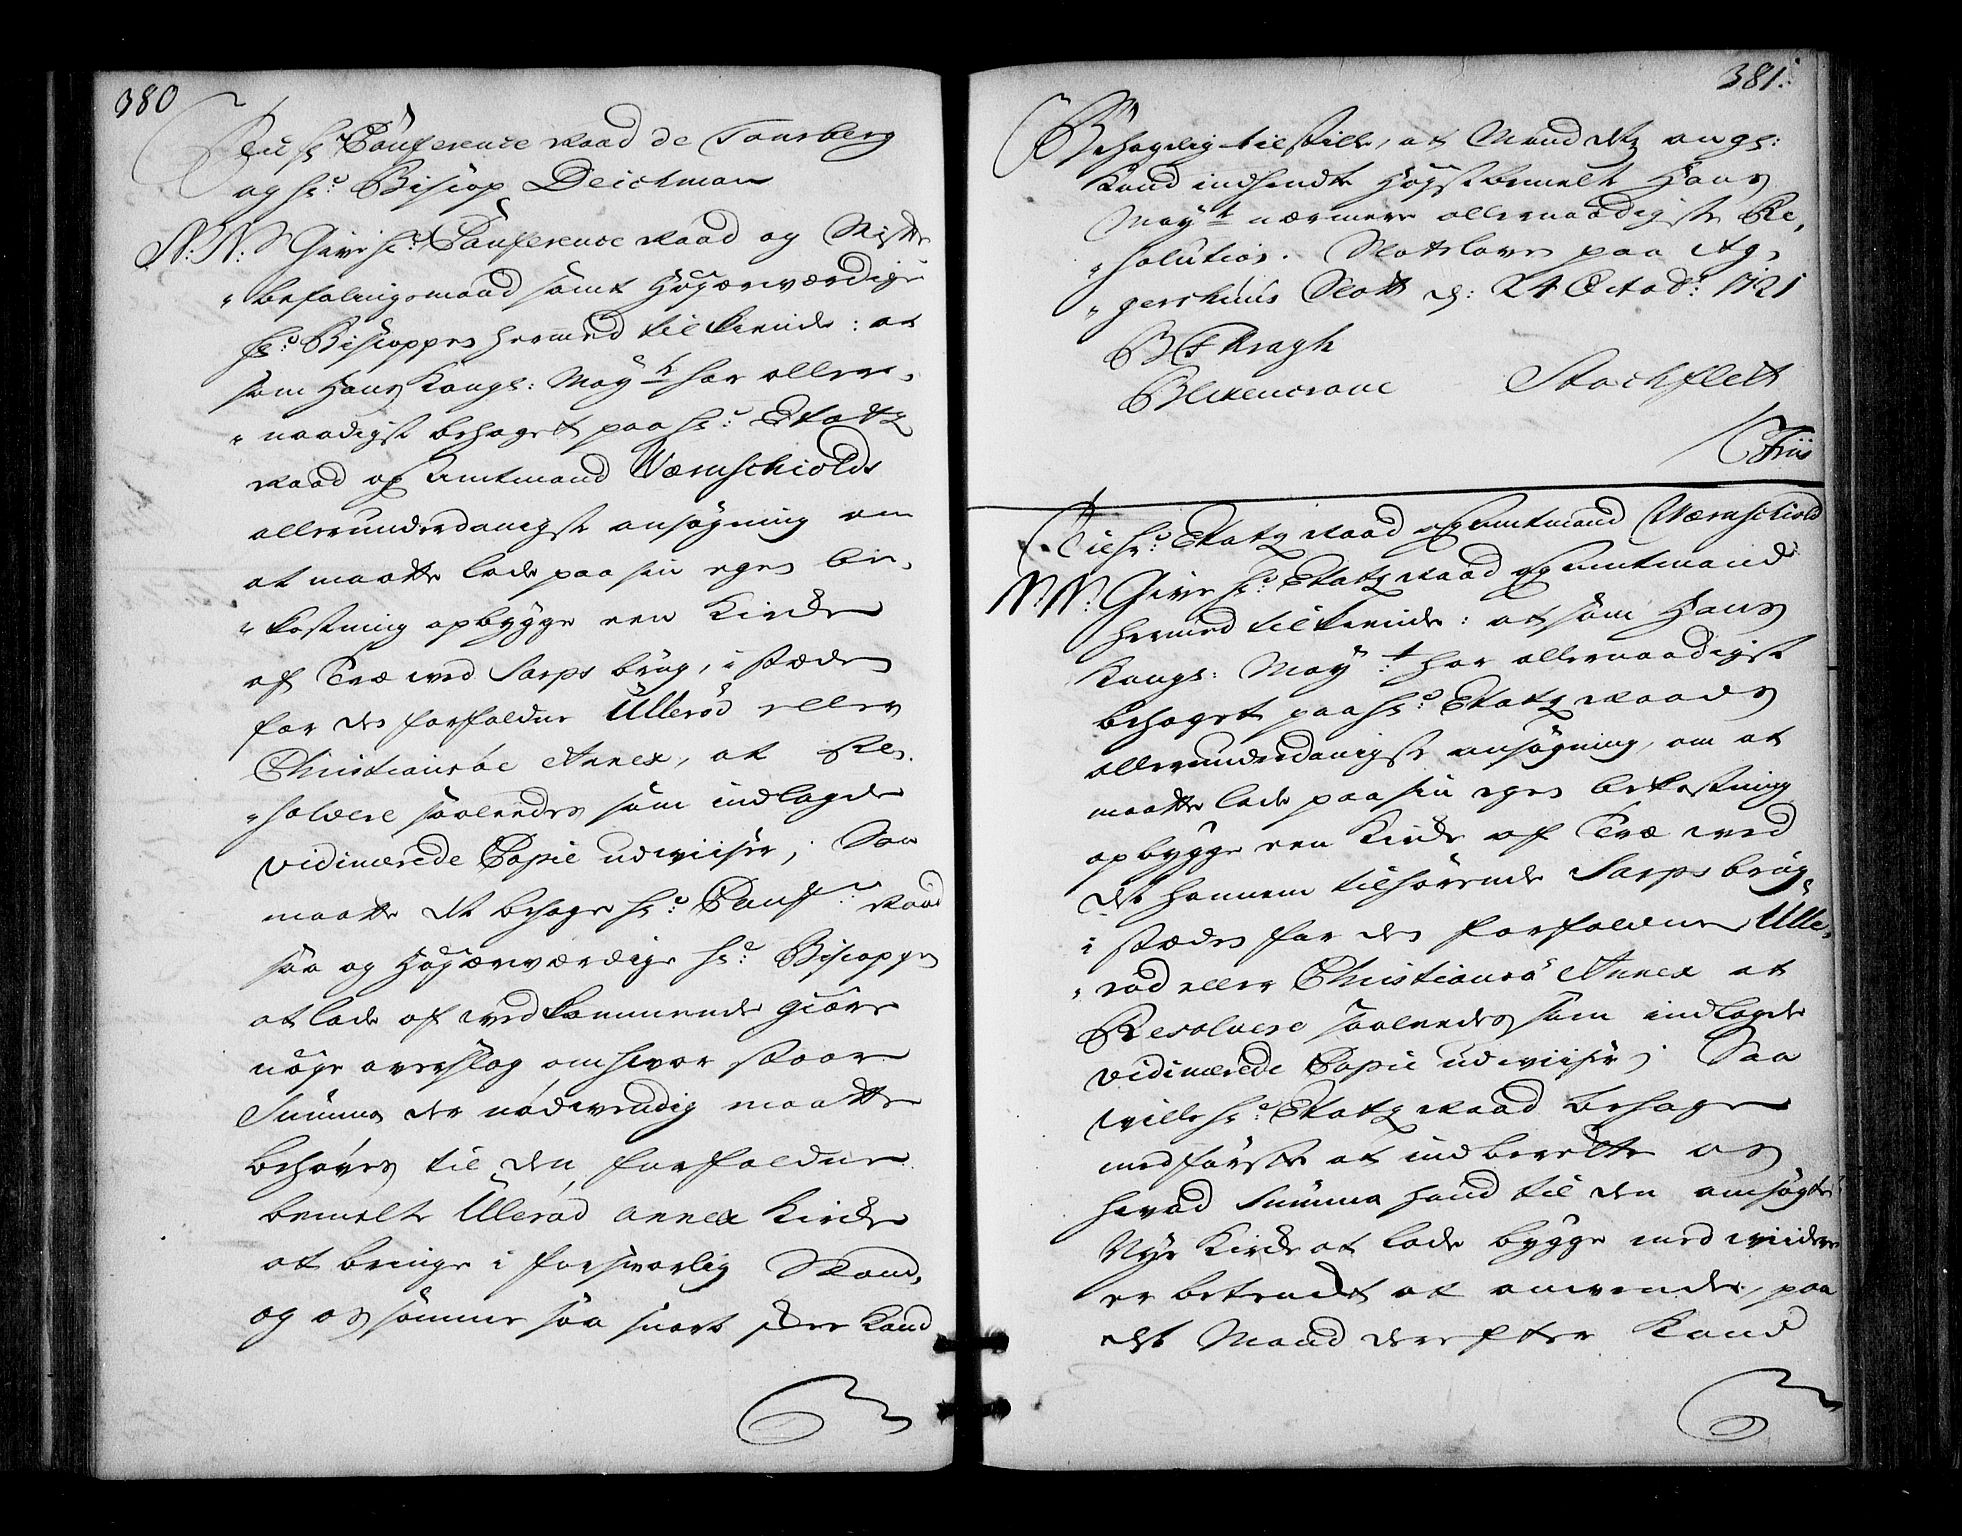 380
Til Hr: Conference Raad de Tonsberg
og Hr: Biscop Deichman
N: N: Give Hr: Conference Raad og Stift
befalingsmand samt Høyærværdige
Hr: Bisсoppen hermed tilkiende: at
som Hans Kongl: Mayt: har aller-
naadigst behaget paa Hr: Etatz
Raad og Amtmand Wærnschiolds
allerunderdanigste ansøgning om
at maatte lade paa sin egen be-
kostning opbygge een Kirke
af Træ ved Sarps brug, i stæden
for den forfaldne Ullerød eller
Christiansøe Annex, at Re-
solvere saaledes som indlagde
vidimerede Copie udviiser; Saa
maatte det behage Hr: Conf: Raad
saa og Høyærværdige Hr: Biscoppen
at lade af vedkommende giøre
nøye overslag om hvor stoer
Summa der nødvendig maatte
behøves til den forfaldne
bemelte Ullerød annex Kirke
at bringe i forsvarlig Stand,
og os samme saa snart skee kand
381.
Behagelig tilstille, at Mand dets angl:
kand indsendte Høystbemelte Hans
Mayt: nærmere allernaadigste Re-
solution. Slotsloven paa Ag-
gershuus Slott d: 24 Octob: 1721
B F Kragh
Blixencrone Stockflett
Friis
Til Hr: Etatz Raad og Amtmand Wærnschiold
N: N: Give Hr: Etatz Raad og Amtmand
hermed tilkiende: at som Hans
Kongl: Mayt: har allernaadigst
behaget paa Hr: Etatz Raads
allerunderdanigste ansøgning, om at
maatte lade paa sin egen bekostning
opbygge een Kirke af Træ ved
det hannem tilhørende Sarps brug
i stæden for den forfaldne Ulle-
rød eller Christiansø Annex at
Resolvere saaledes som indlagde
vidimerede Copie udviiser; Saa
ville Hr: Etatz Raad behage
med første at indberette os
hvad Summa hand til den ansøgte
Nye Kirke at lade bygge med viidere
er betænckt at anvende, paa
det Mand derefter kand